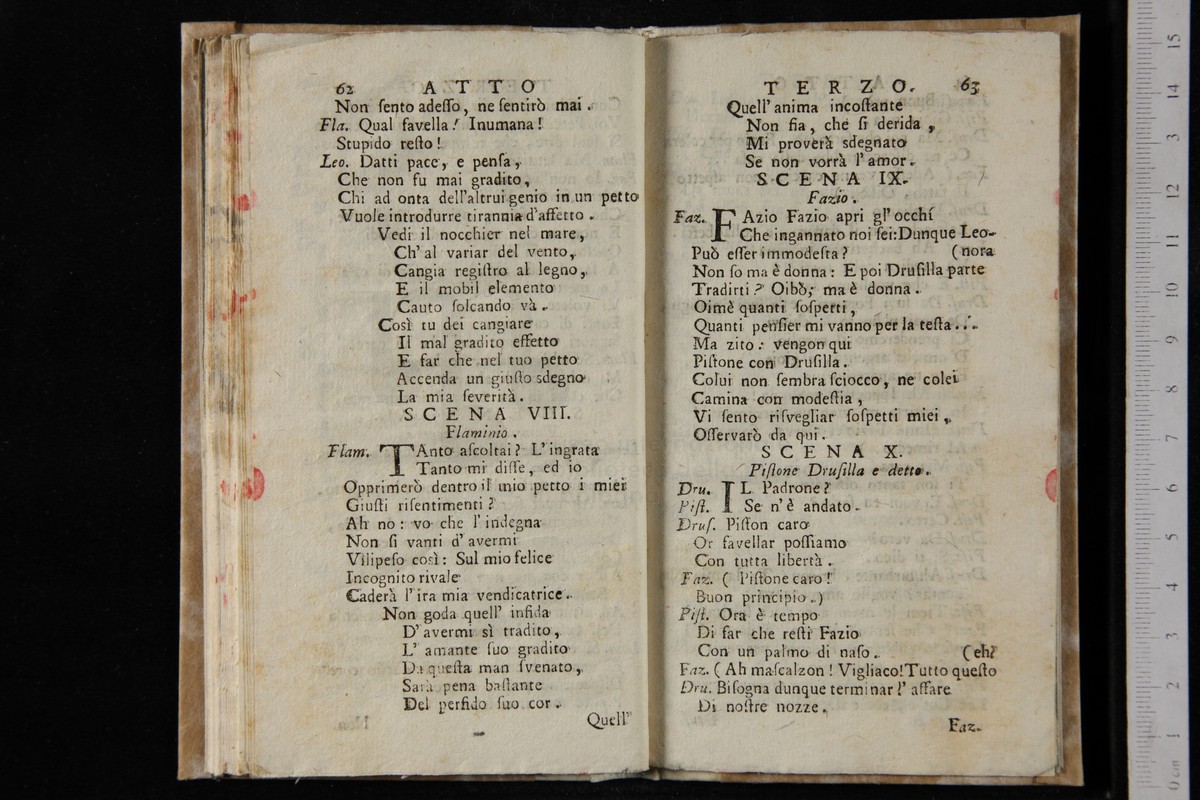 62 ATTO
Non ſento adeſſo, ne ſentirò mai.
Fla. Qual favella! Inumana!
Stupido reſto!
Leo. Datti pace, e penſa,
Che non fu mai gradito,
Chi ad onta dell'altrui genio in un petto
Vuole introdurre tirannia d'affetto.
Vedi il nocchier nel mare,
Ch' al variar del vento,
Cangia regiſtro al legno,
E il mobil elemento
Cauto ſolcando và.
Così tu dei cangiare
Il mal gradito effetto
E far che nel tuo petto
Accenda un giuſto sdegno
La mia ſeverità.
SCENA VIII.
Flaminio.
Flam. TAnto aſcoltai? L'ingrata
Tanto mi diſſe, ed io
Opprimerò dentro il mio petto i miei
Giuſti riſentimenti?
Ah no: vo che l'indegna
Non ſi vanti d'avermi
Vilipeſo così: Sul mio felice
Incognito rivale
Caderà l'ira mia vendicatrice.
Non goda quell' infida
D'avermi sì tradito,
L' amante ſuo gradito
Da queſta man ſvenato,
Sarà pena baſtante
Del perfido ſuo cor.
Quell'
TERZO. 63
Quell' anima incoſtante
Non fia, che ſi derida,
Mi proverà sdegnato
Se non vorrà l'amor.
SCENA IX.
Fazio.
Faz. FAzio Fazio apri gl' occhi
Che ingannato noi ſei: Dunque Leo-
Può eſſer immodeſta? (nora
Non ſo ma è donna: E poi Druſilla parte
Tradirti? Oibò; ma è donna.
Oimè quanti ſoſperti,
Quanti penſier mi vanno per la teſta...
Ma zito: vengon qui
Piſtone con Druſilla.
Colui non ſembra ſciocco, ne colei
Camina con modeſtia,
Vi ſento riſvegliar ſoſpetti miei,
Oſſervarò da qui.
SCENA X.
Piſtone Druſilla e detto.
Dru. IL Padrone?
Piſt. Se n'è andato.
Druſ. Piſton caro
Or favellar poſſiamo
Con tutta libertà.
Faz. ( Piſtone caro!
Buon principio.)
Piſt. Ora è tempo
Di far che reſti Fazio
Con un palmo di naſo. (eh?
Faz. ( Ah maſcalzon! Vigliaco! Tutto queſto
Dru. Biſogna dunque terminar l'affare
Di noſtre nozze.
Faz.